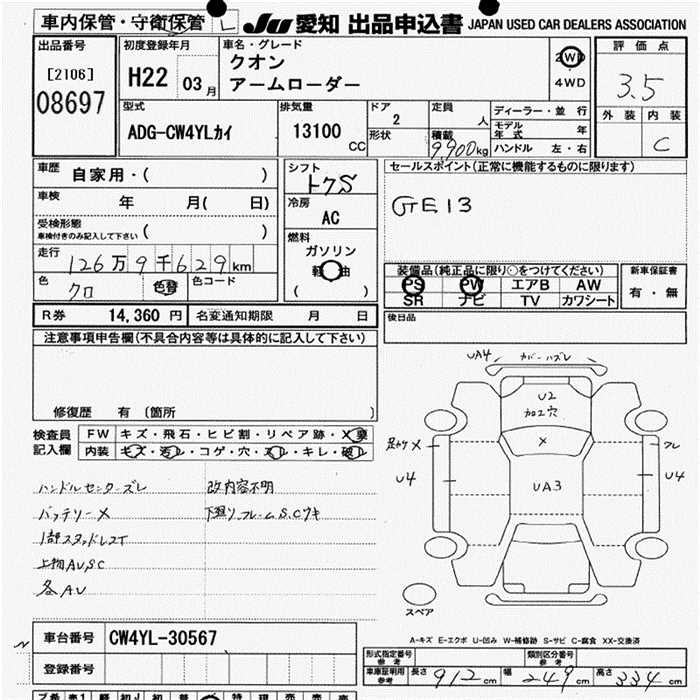 車内保管・守衛保管 L JU 愛知 出品申込書 JAPAN USED CAR DEALERS ASSOCIATION
出品番号
[2106]
08697
初度登録年月
H22 03月
車名・グレード
クオン
アームローダー
2WD
4WD
評価点
3.5
外装 内装
C
型式
ADG-CW4YLカイ
排気量
13100 CC
ドア
2
形状
定員
人
積載
9900kg
ディーラー・並行
モデル年式 年
ハンドル 左・右
車歴 自家用・( )
車検 年 月( 日)
受検形態
車検付きのみ記入して下さい ( )
走行
126万9千629km
色 クロ 色替 色コード
シフト
トクS
冷房
AC
燃料
ガソリン
軽油
( )
セールスポイント(正常に機能するものに限ります)
GE13
装備品(純正品に限り○をつけてください)
PS PW エアB AW
SR ナビ TV カワシート
新車保証書
有・無
R券 14,360円 名変通知期限 月 日
後日品
注意事項申告欄(不具合内容等は具体的に記入して下さい)
修復歴 有 〔箇所 〕
検査員記入欄
FW キズ・飛石・ヒビ割・リペア跡・X要
内装 キズ・汚レ・コゲ・穴・スレ・キレ・破レ
ハンドルセンターズレ 改内容不明
バッテリーX 下廻リフレームS.Cサキ
1部スタッドレスT
上物AU.SC
各AU
UA4 カバーハズレ
U2
加工穴
X
足カケX
U4
UA3
フレ
U4
スペア
A-キズ E-エクボ U-凹み W-補修跡 S-サビ C-腐食 XX-交換済
車台番号 CW4YL-30567
登録番号
型式指定番号
参考
類別区分番号
参考
車庫証明用
参考
長さ 912cm 幅 249cm 高さ 334cm